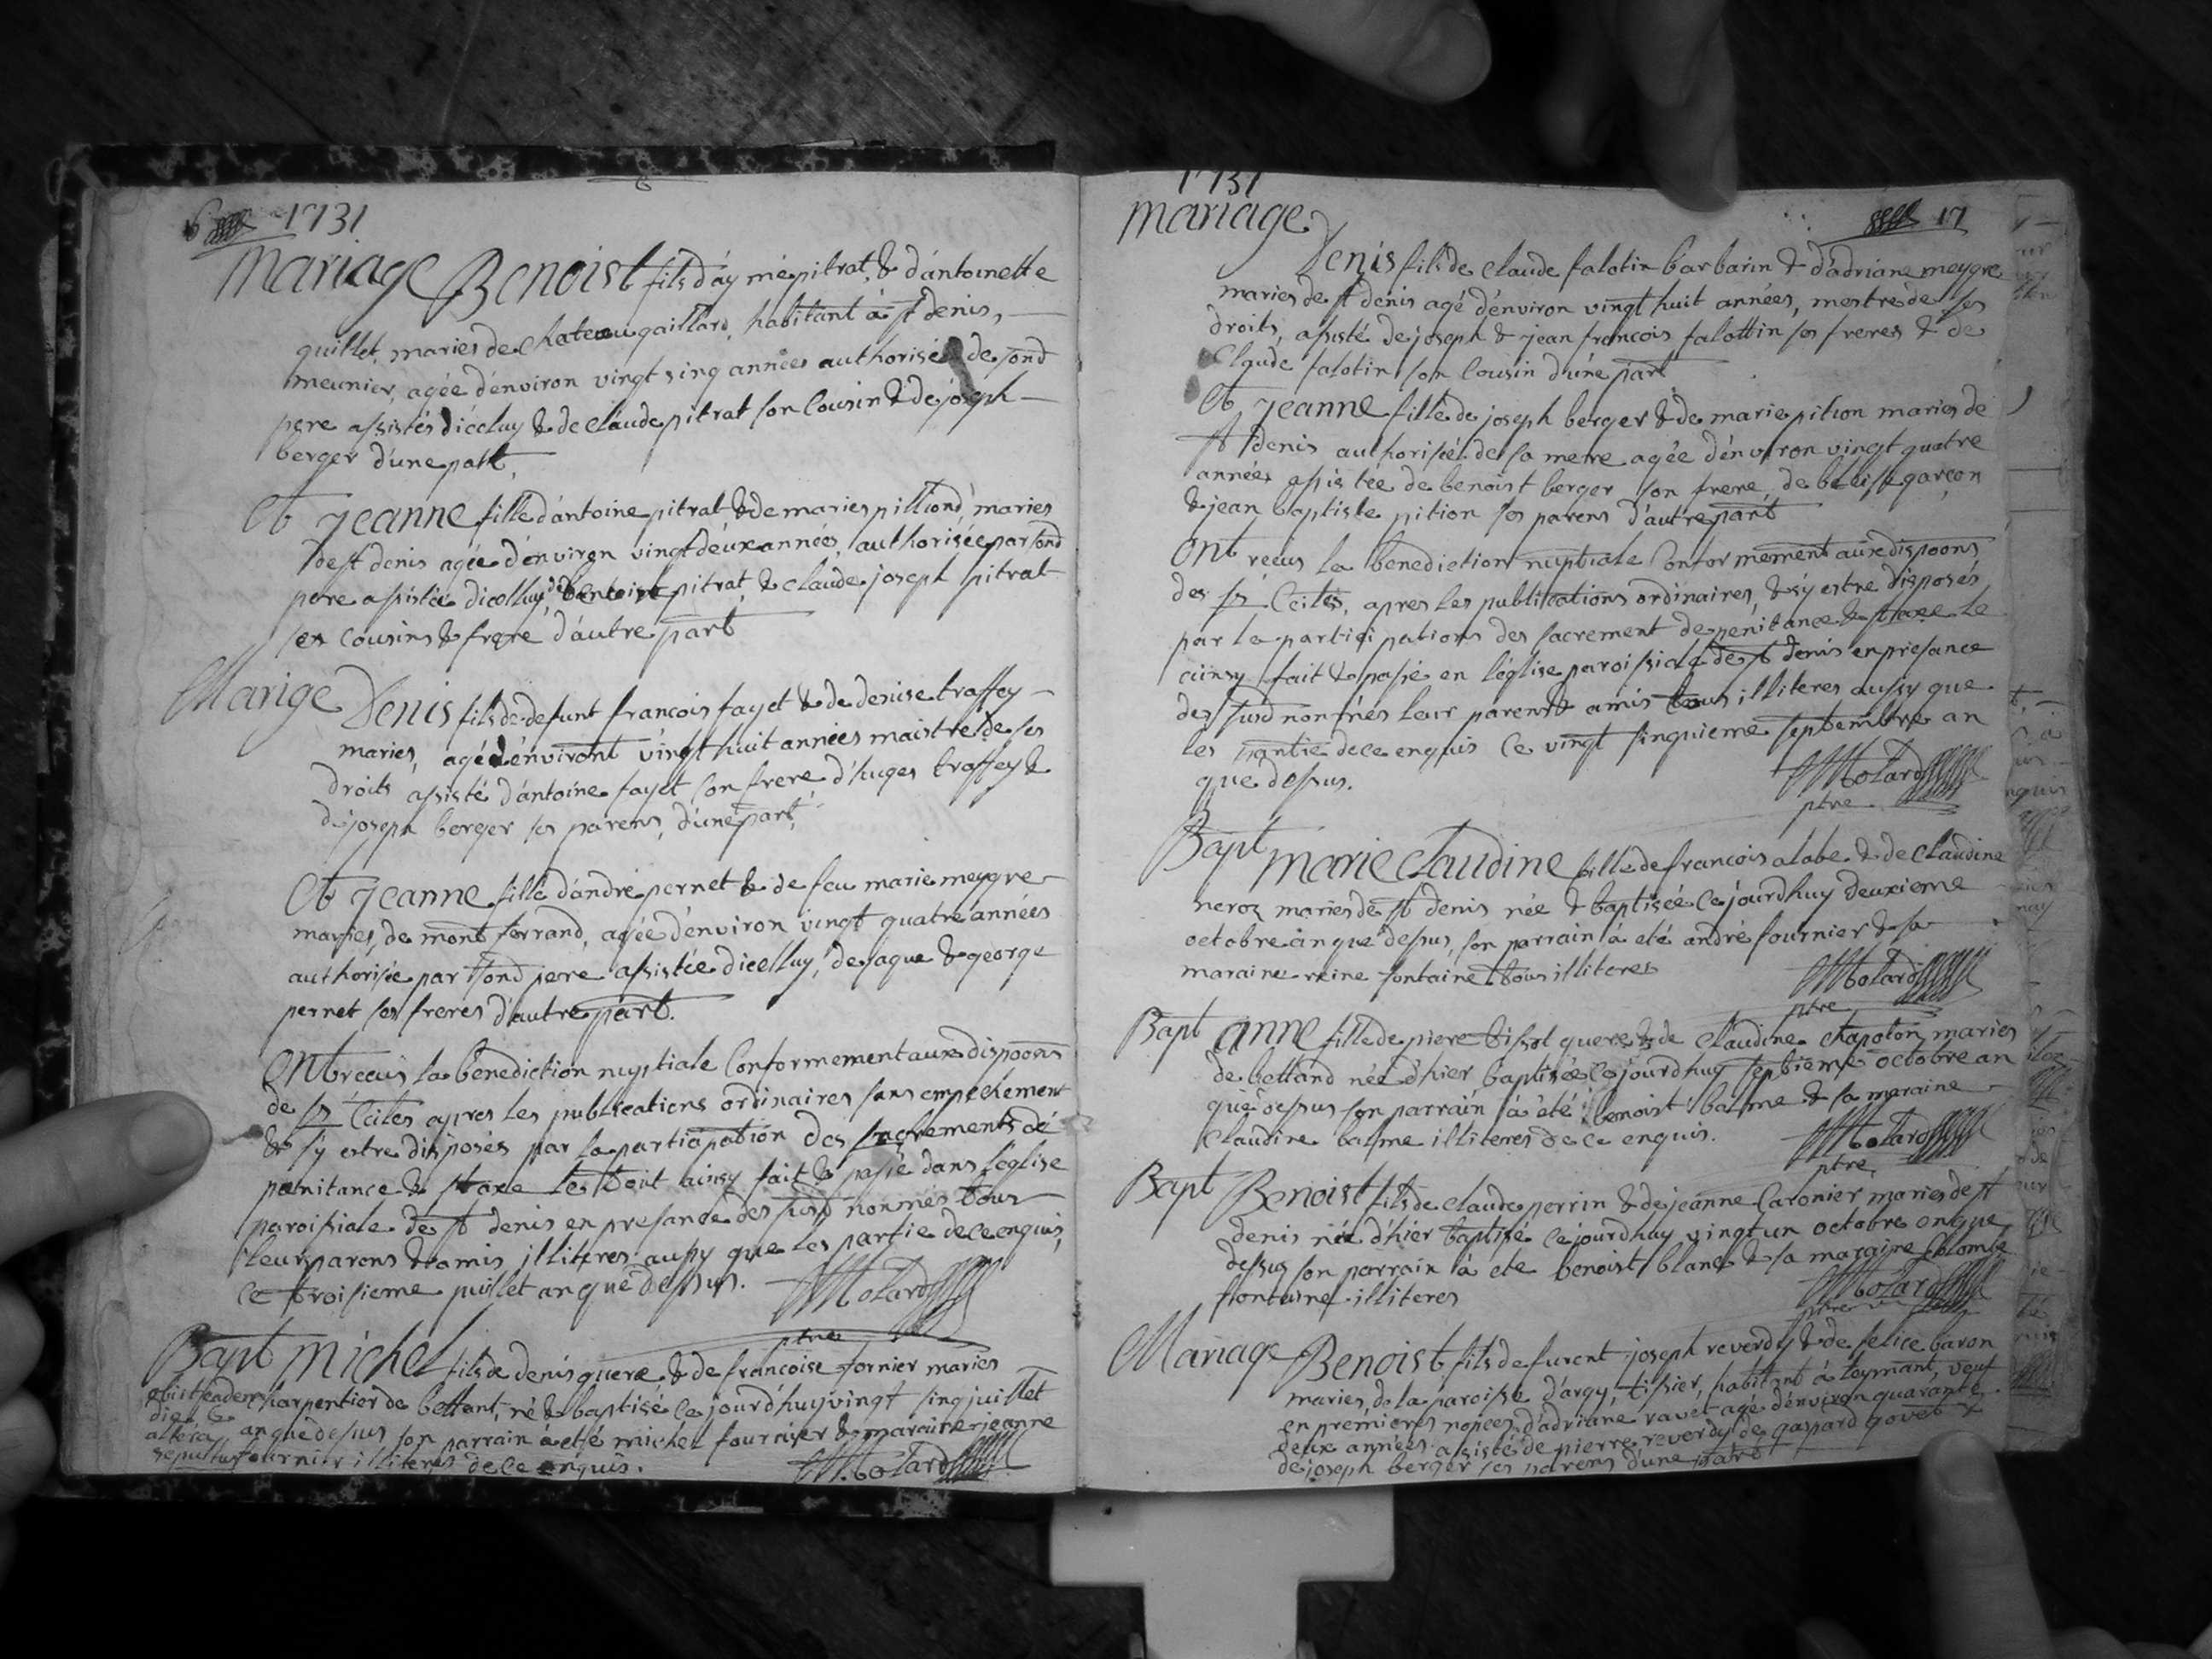 6 1731
Mariage Benoist fils d'aymé pitrat, & d'antoinette
quillet, maries de chateaugaillard, habitant à st denis,
meunier, agée d'énviron vingt sing années authorisé de sond
pere assistés d'icelluy & de claude pitrat son Cousin & de joseph
berger d'une part,
Et Jeanne fille d'antoine pitrat & de marie pittiond maries
de st denis agée d'énviron vingt deux années, authorisée par sond
pere assistée dicelluy, de benoist pitrat, & claude joseph pitrat
ses Cousins & frere d'autre part
Marige Denis fils de defunt francois fayet & de denise traffey
maries, agé d'énviront vingt huit années maistre de ses
droits assisté d'antoine fayet son frere d'huges traffey &
de joseph berger ses parens, d'une part,
Et Jeanne fille d'andré pernet & de feu marie meygre
maries, de mont ferrand, agée d'énviron vingt quatre années
authorisée par sond pere assistée dicelluy, de jaque & george
pernet ses freres d'autre part.
Ont reçus la bénediction nuptiale Conformement aux disposons
de sts Cciles apres les publications ordinaires sans empechement
& s'y estre disposés par la participation des sacrements de
penitance & st axe le tout ainsy fait & passé dans l'église
paroissiale de st denis en presance des susd nonmés tous
leurs parens & amis illiteres aussy que les partie de ce enquis,
Ce troisieme juillet an que dessus. Molard
ptre
Bapt Michel fils de denis quere & de francoise fornier maries
obiit eadem charpentier de bettant, né & baptisé ce jourd'huy vingt sing juillet
die & an que dessus son parrain à eté michel fournier & maraine jeanne
altera
sepultus fournier illiteres de ce enquis. Molard
1731
17
Mariage
Denis fils de claude falotin barbarin & d'adriane meygre
maries de st denis agé d'énviron vingt huit années, mestre de ses
droits, assisté de joseph & jean francois falottin ses freres & de
Claude falotin son Cousin d'une part
Et Jeanne fille de joseph berger & de marie pition maries de
st denis authorisé de sa mere agée d'énviron vingt quatre
années assistée de benoist berger son frere, de blaise garçon
& jean baptiste pition ses parens d'autre part
Ont reçus la benediction nuptiale Conformement aux disposons
des sts Cciles, apres les publications ordinaires, & s'y estre disposés
par la participations des sacrement de penitance & st axe le
ainsy fait & passé en l'église paroissiale de st denis en presance
des susd nonmés leur parens & amis tous illiteres aussy que
les partie de ce enquis Ce vingt sinquieme septembre an
que dessus. Molard
ptre
Bapt Marie Claudine fille de francois alabe & de Claudine
neroz maries de st denis née & baptisée ce jourdhuy deuxieme
octobre an que dessus, son parrain à eté andré fournier & sa
maraine reine fontaine tous illiteres Molard
ptre
Bapt Anne fille de piere tissot quere & de Claudine chapoton maries
de bettand née d'hier baptisée ce jourdhuy septieme octobre an
que dessus son parrain à été benoist balme & sa maraine
Claudine balme illiteres de ce enquis. Molard
ptre
Bapt Benoist fils de claude perrin & de jeanne Caronier maries de st
denis née d'hier baptisé ce jourdhuy vingt un octobre an que
dessus son parrain à ete benoist blanc & sa maraine Colombe
fontaine illiteres Molard
ptre
Mariage Benoist fils de furent joseph reverdy & de felice baron
maries de la paroisse d'argy, tissier, habitant à leymant, veuf
en premieres nopces d'adriane ravet agé d'énviron quarante
deux années assisté de pierre reverdy de gaspard govet &
de joseph berger ses parens d'une part